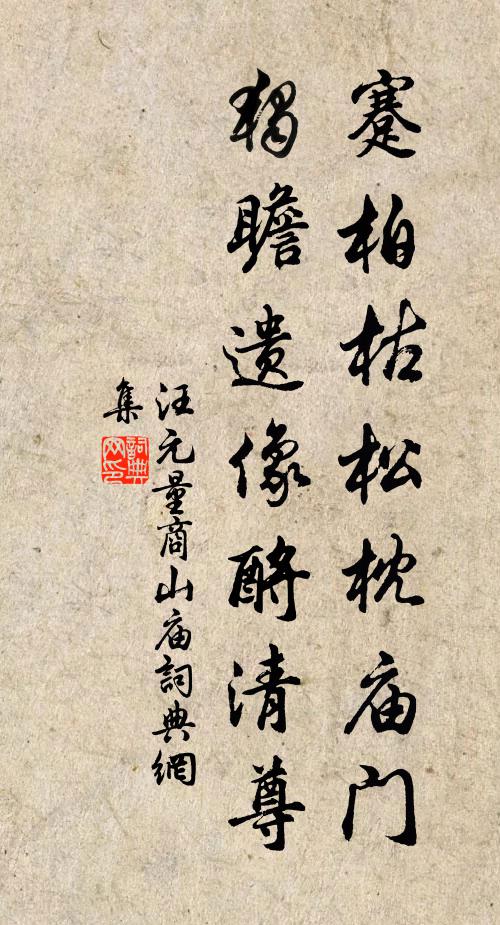 蹇柏枯松枕庙门
独瞻遗像酹清尊
汪元量商山庙詞典網
集
詞典
网印